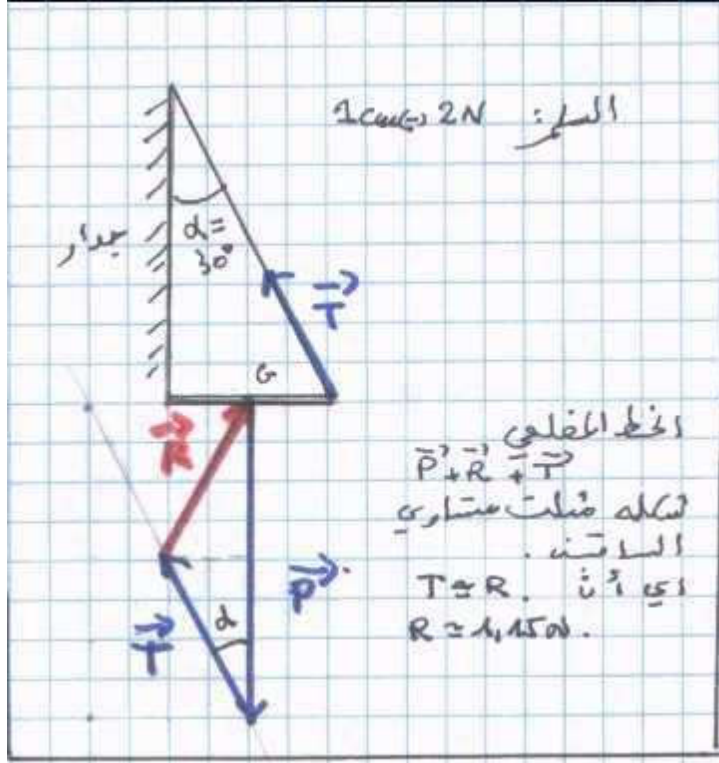 السلم: 1cm↔2N
جدار
α=
30°
T
G
R
الخط المضلعي
P + R + T
شكله مثلث متساوي
الساقين.
T≃R. أي أن
P
α
T
R≃1,15N.